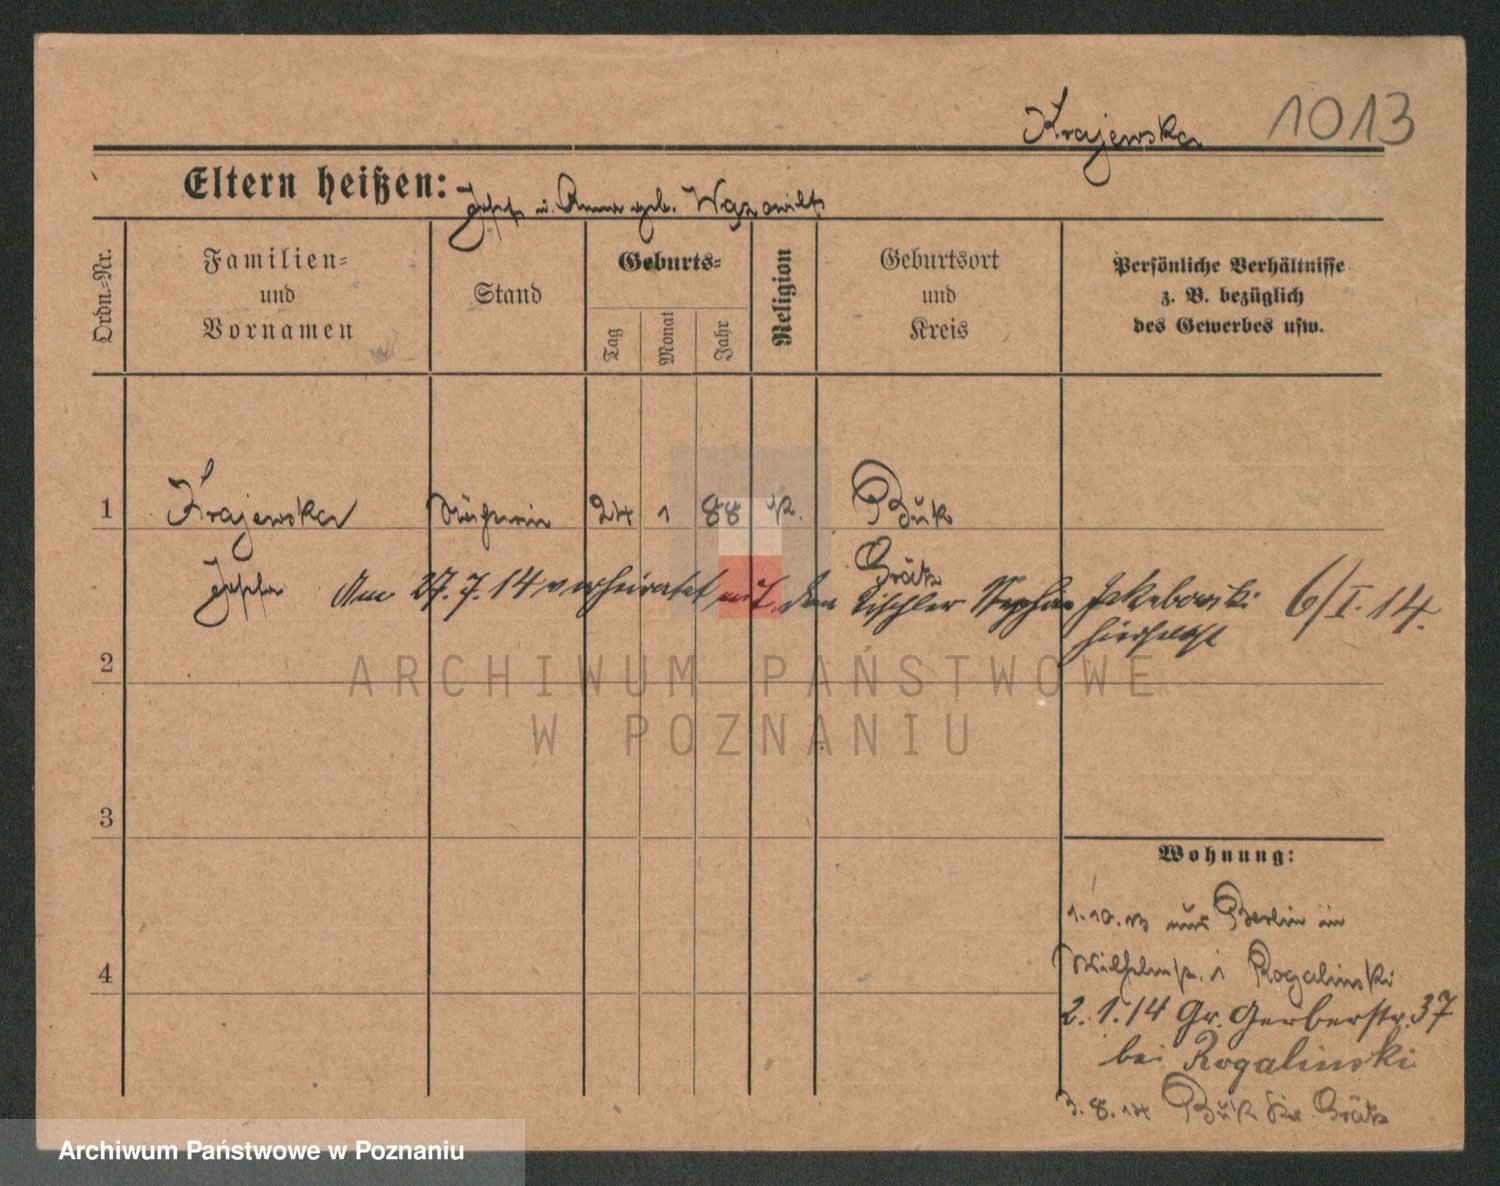 Krajewska 1013
Eltern heißen: Josef u. Anna geb.
Ordn.-Nr.
Familien-
und
Vornamen
Stand
Geburts-
Tag
Monat
Jahr
Religion
Geburtsort
und
Kreis
Persönliche Verhältnisse
z. B. bezüglich
des Gewerbes usw.
1 Krajewska Näherin 24 1 88 k. Buk
Grätz
Josefa Am 27.7.14 verheiratet mit dem Tischler Stephan Jakubowski 6/I.14.
hierselbst
2
ARCHIWUM PAŃSTWOWE
W POZNANIU
3
Wohnung:
1.10.13 aus Berlin in
4 Wilhelmstr. 1 Rogalinski
2.1.14 Gr. Gerberstr. 37
bei Rogalinski
3.8.14 Buk Kr. Grätz
Archiwum Państwowe w Poznaniu